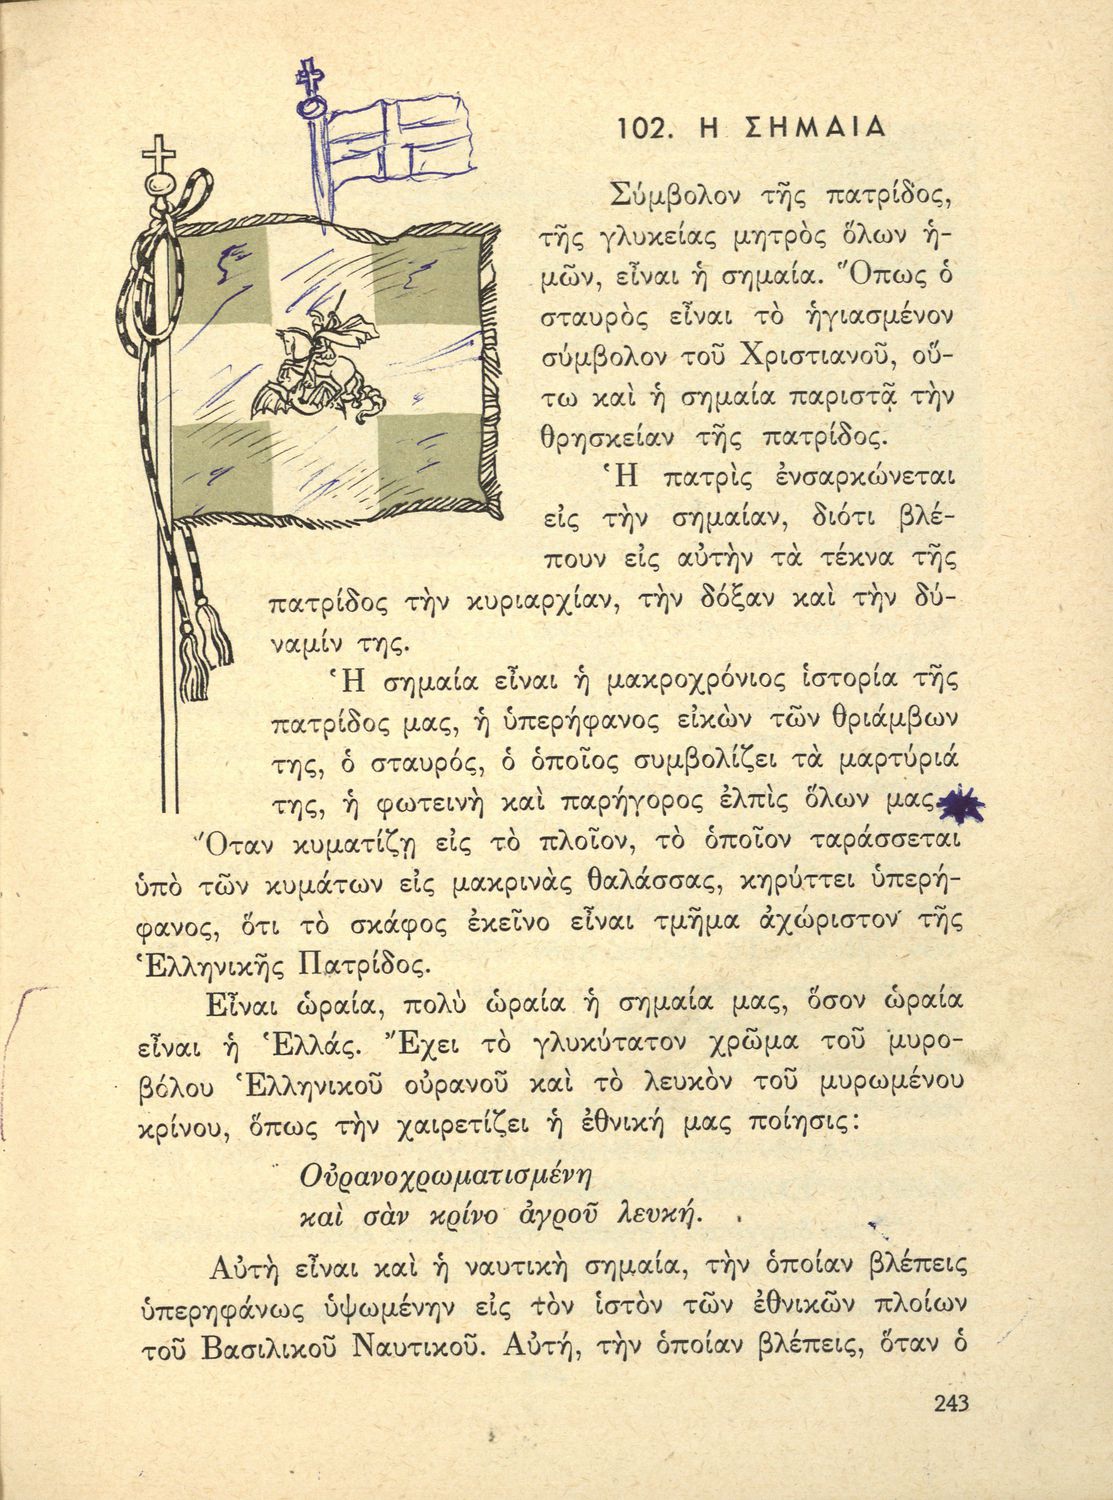 102. Η ΣΗΜΑΙΑ
Σύμβολον τῆς πατρίδος,
τῆς γλυκείας μητρὸς ὅλων ἡ-
μῶν, εἶναι ἡ σημαία. Ὅπως ὁ
σταυρὸς εἶναι τὸ ἡγιασμένον
σύμβολον τοῦ Χριστιανοῦ, οὕ-
τω καὶ ἡ σημαία παριστᾷ τὴν
θρησκείαν τῆς πατρίδος.
Ἡ πατρὶς ἐνσαρκώνεται
εἰς τὴν σημαίαν, διότι βλέ-
πουν εἰς αὐτὴν τὰ τέκνα τῆς
πατρίδος τὴν κυριαρχίαν, τὴν δόξαν καὶ τὴν δύ-
ναμίν της.
Ἡ σημαία εἶναι ἡ μακροχρόνιος ἱστορία τῆς
πατρίδος μας, ἡ ὑπερήφανος εἰκὼν τῶν θριάμβων
της, ὁ σταυρός, ὁ ὁποῖος συμβολίζει τὰ μαρτύριά
της, ἡ φωτεινὴ καὶ παρήγορος ἐλπὶς ὅλων μας.
Ὅταν κυματίζῃ εἰς τὸ πλοῖον, τὸ ὁποῖον ταράσσεται
ὑπὸ τῶν κυμάτων εἰς μακρινὰς θαλάσσας, κηρύττει ὑπερή-
φανος, ὅτι τὸ σκάφος ἐκεῖνο εἶναι τμῆμα ἀχώριστον τῆς
Ἑλληνικῆς Πατρίδος.
Εἶναι ὡραία, πολὺ ὡραία ἡ σημαία μας, ὅσον ὡραία
εἶναι ἡ Ἑλλάς. Ἔχει τὸ γλυκύτατον χρῶμα τοῦ μυρο-
βόλου Ἑλληνικοῦ οὐρανοῦ καὶ τὸ λευκὸν τοῦ μυρωμένου
κρίνου, ὅπως τὴν χαιρετίζει ἡ ἐθνική μας ποίησις:
Οὐρανοχρωματισμένη
καὶ σὰν κρίνο ἀγροῦ λευκή.
Αὐτὴ εἶναι καὶ ἡ ναυτικὴ σημαία, τὴν ὁποίαν βλέπεις
ὑπερηφάνως ὑψωμένην εἰς τὸν ἱστὸν τῶν ἐθνικῶν πλοίων
τοῦ Βασιλικοῦ Ναυτικοῦ. Αὐτή, τὴν ὁποίαν βλέπεις, ὅταν ὁ
243